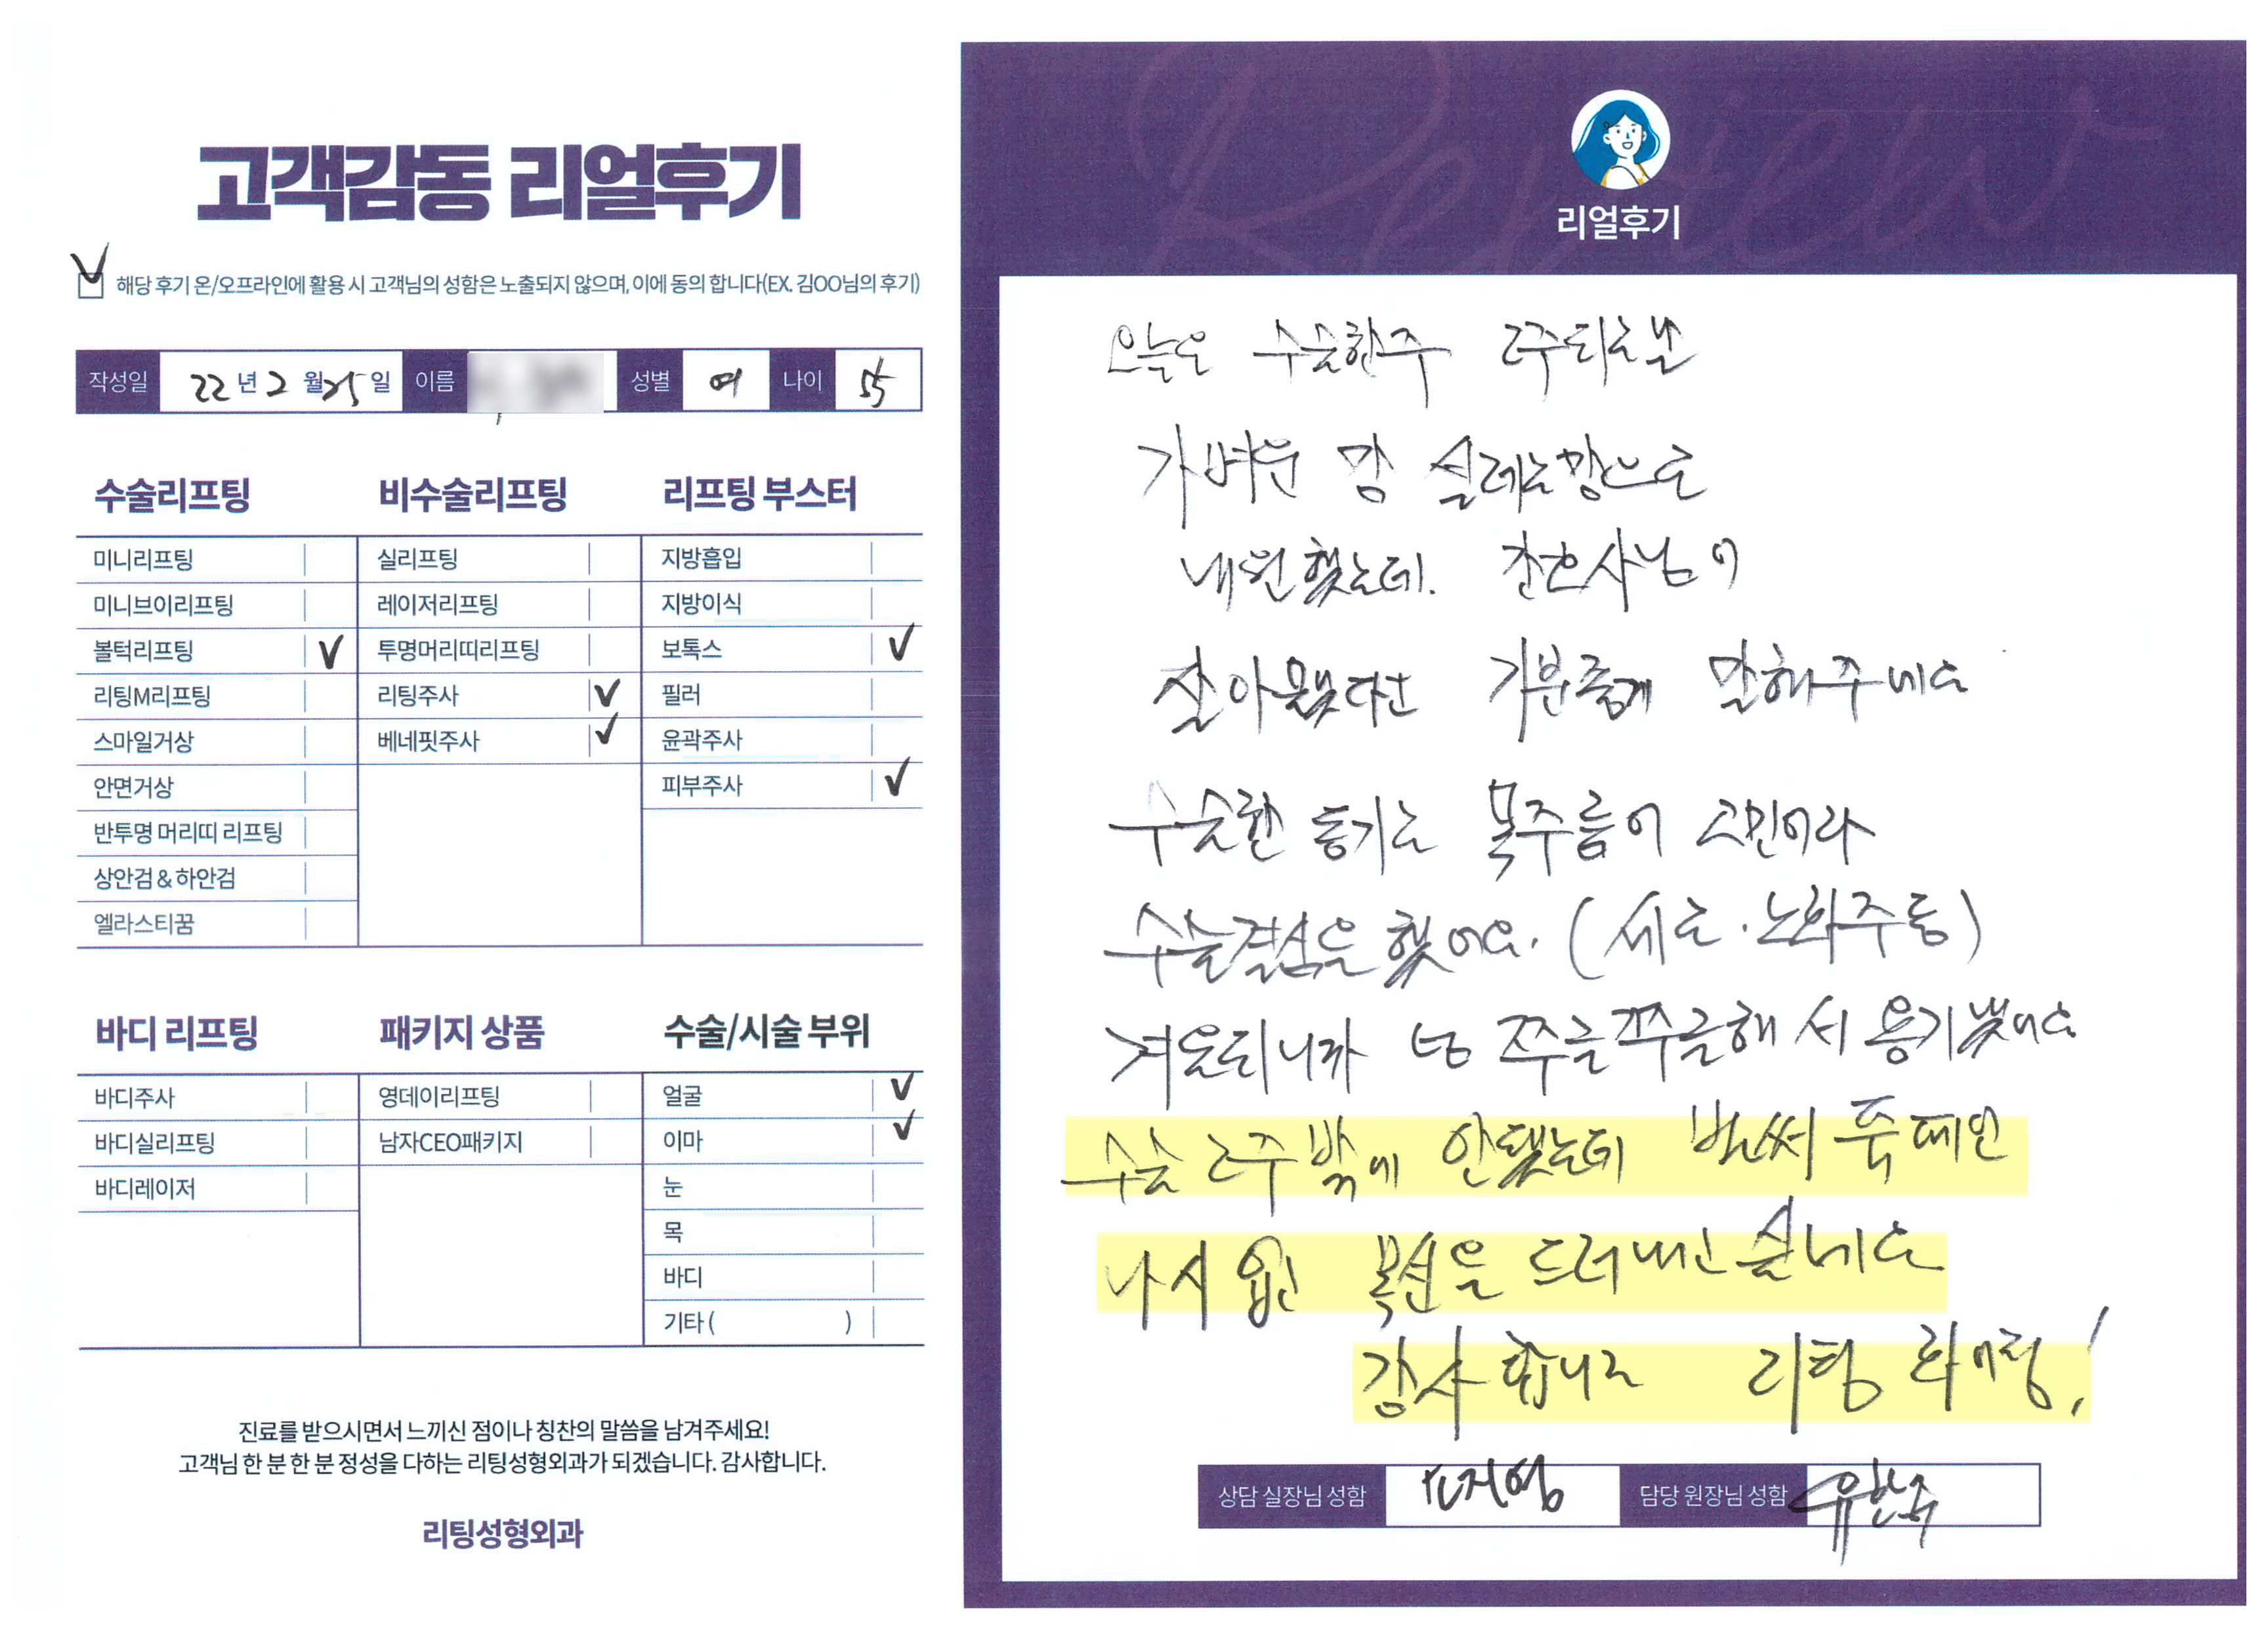 고객감동 리얼후기
해당 후기 온/오프라인에 활용 시 고객님의 성함은 노출되지 않으며, 이에 동의 합니다(EX. 김OO님의 후기)
작성일 22년 2월 25일 이름 성별 여 나이 55
수술리프팅
미니리프팅
미니브이리프팅
볼턱리프팅 V
리팅M리프팅
스마일거상
안면거상
반투명 머리띠 리프팅
상안검 & 하안검
엘라스티꿈
비수술리프팅
실리프팅
레이저리프팅
투명머리띠리프팅
리팅주사 V
베네핏주사 V
리프팅 부스터
지방흡입
지방이식
보톡스 V
필러
윤곽주사
피부주사 V
바디 리프팅
바디주사
바디실리프팅
바디레이저
패키지 상품
영데이리프팅
남자CEO패키지
수술/시술 부위
얼굴 V
이마 V
눈
목
바디
기타 ( )
진료를 받으시면서 느끼신 점이나 칭찬의 말씀을 남겨주세요!
고객님 한 분 한 분 정성을 다하는 리팅성형외과가 되겠습니다. 감사합니다.
리팅성형외과
Review
리얼후기
오늘은 수술한주 2주되는날
가벼운 맘 설레는맘으로
내원했는데. 간호사님이
잘아물었다고 기분좋게 말해주네요
수술한 동기는 목주름이 고민이라
수술결심을 했어요. (세로·노화주름)
겨울되니까 넘 쭈글쭈글해서 용기냈네요
수술 2주밖에 안됐는데 벌써 목폴라
나시 입고 목선을 드러내고싶네요
감사합니다 리팅 화이팅!
상담 실장님 성함 담당 원장님 성함 유한주